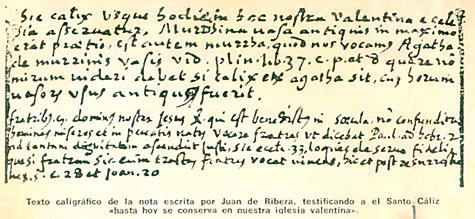 hic calix usque hodie in hac nostra Valentina eccle
sia asseruatur, Murrhina uasa antiquis in maximo
erāt prætio, est autem murrha, quod nos vocamus Agatha
de murrinis vasis vid. plin. lib. 37. c. 2. et 8 quare nō
mirum uideri debet si calix ex agatha sit, cum horum
uasorū usus antiquus fuerit.
fratribs. q. dominus noster Jesus X. qui est benedictus in sæcula, nō confunditur
homines miseros et in peccatis natos vocare fratres ut dicebat Paul. ad hebr. 2
sic eccle. 33, loquēs de seruo fideli
quasi fratrem sic eum tracta fratres vocat
c. 28 et Joan. 20
Texto caligráfico de la nota escrita por Juan de Ribera, testificando a el Santo Cáliz
«hasta hoy se conserva en nuestra iglesia valentina».